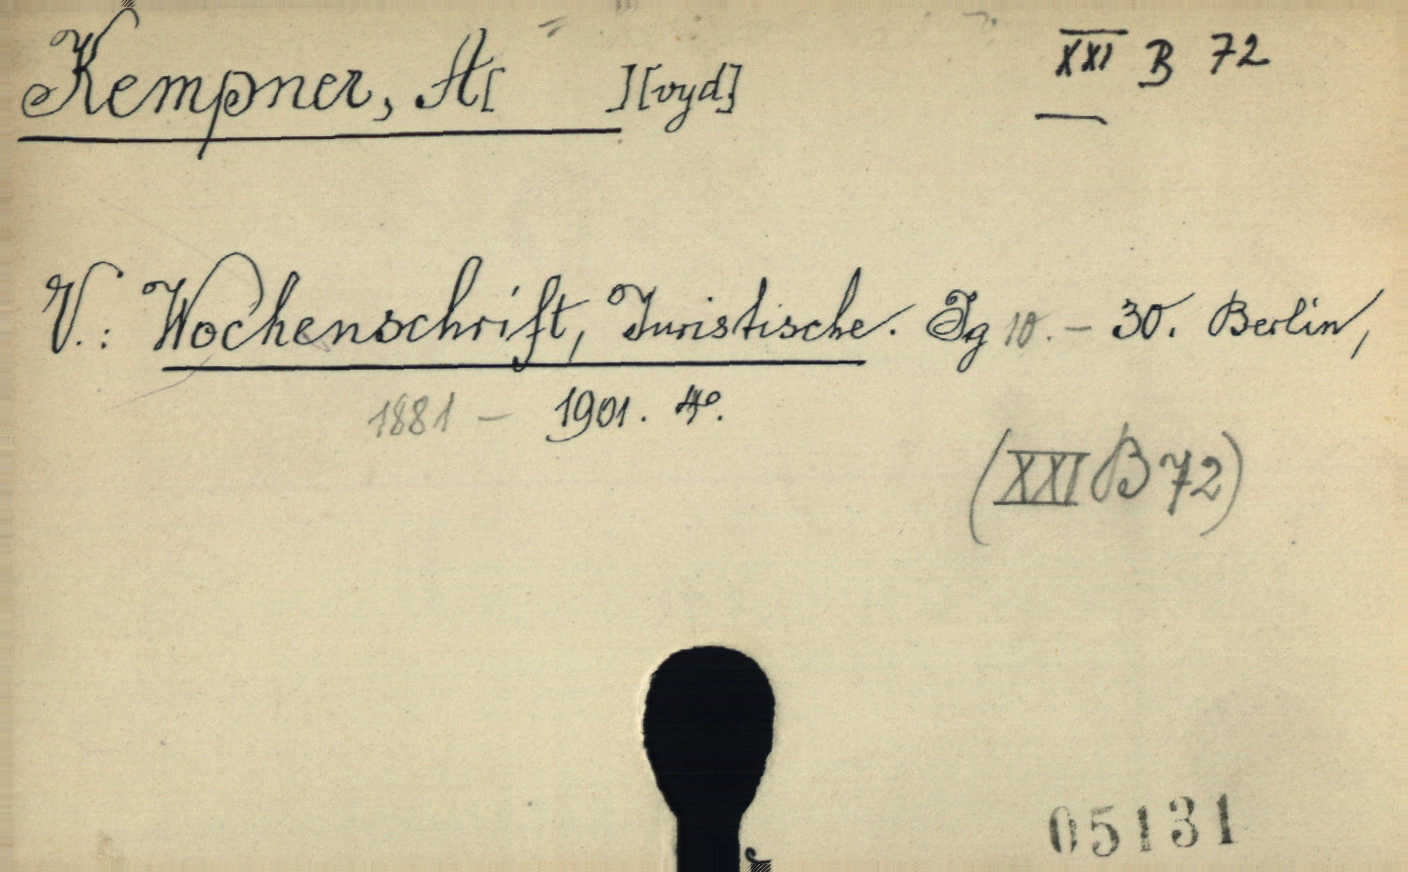 Kempner, A[ ][vyd.] XXI B 72
V.: Wochenschrift, Juristische. Jg 10. - 30. Berlin,
1881 - 1901. 4º.
(XXI B 72)
05131